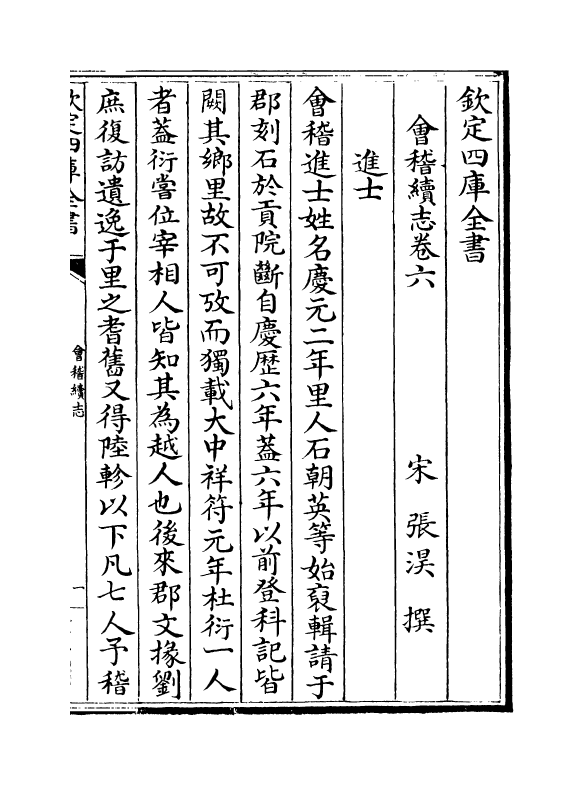 欽定四庫全書
會稽續志卷六
宋 張淏 撰
進士
會稽進士姓名慶元二年里人石朝英等始裒輯請于
郡刻石於貢院斷自慶歷六年蓋六年以前登科記皆
闕其鄉里故不可攷而獨載大中祥符元年杜衍一人
者蓋衍嘗位宰相人皆知其為越人也後來郡文掾劉
庶復訪遺逸于里之耆舊又得陸軫以下凡七人予稽
欽定四庫全書
會稽續志
一